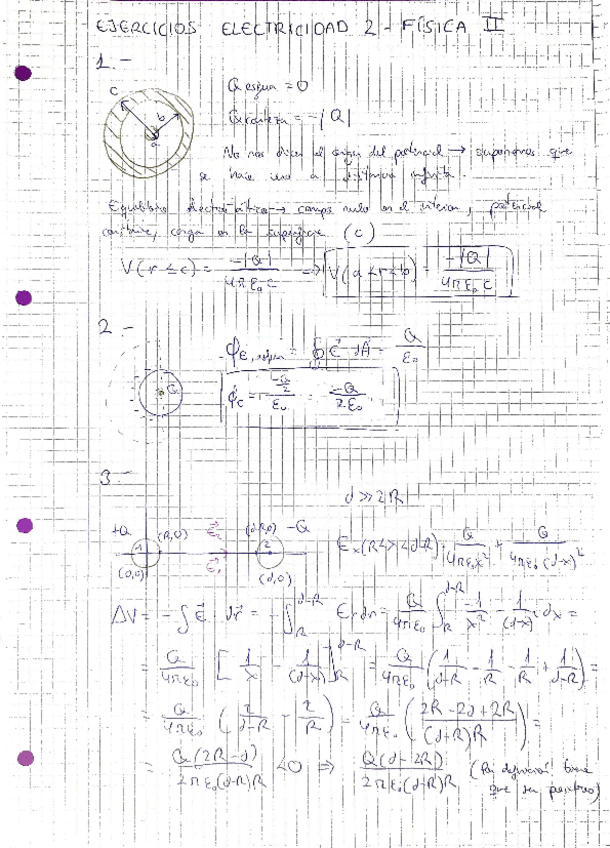 EJERCICIOS ELECTRICIDAD 2 - FÍSICA II
1.-
c
b
a
Q esfera = 0
Q corteza = -|Q|
No nos dicen el origen del potencial → suponemos que
se hace cero a distancia infinita.
Equilibrio electrostático → campo nulo en el interior, potencial
constante, carga en la superficie (c)
V(r≤c) = -|Q| / 4πε₀c ⇒ V(a<r<b) = -|Q| / 4πε₀c
2-
Q
= ∮ E⃗ · dA⃗ = Q/ε₀
ϕ_E = (-Q/2)/ε₀ = -Q/2ε₀
3-
d >> 2R
+Q (R,0) E⃗₂ (d-R,0) -Q
1 E⃗₁ 2
(0,0) (d,0)
Eₓ(R<x<d-R) = Q/4πε₀x² + Q/4πε₀(d-x)²
ΔV = -∫ E⃗ · dr⃗ = -∫_R^{d-R} E r dr = Q/4πε₀ ∫_R^{d-R} -1/x² - 1/(d-x)² dx =
= Q/4πε₀ [1/x - 1/(d-x)]_R^{d-R} = Q/4πε₀ (1/(d-R) - 1/R - 1/R + 1/(d-R)) =
= Q/4πε₀ (2/(d-R) - 2/R) = Q/4πε₀ ((2R-2d+2R)/((d-R)R)) =
= Q(2R-d)/2πε₀(d-R)R < 0 ⇒ Q(d-2R)/2πε₀(d-R)R (Por definición tiene
que ser positivo)